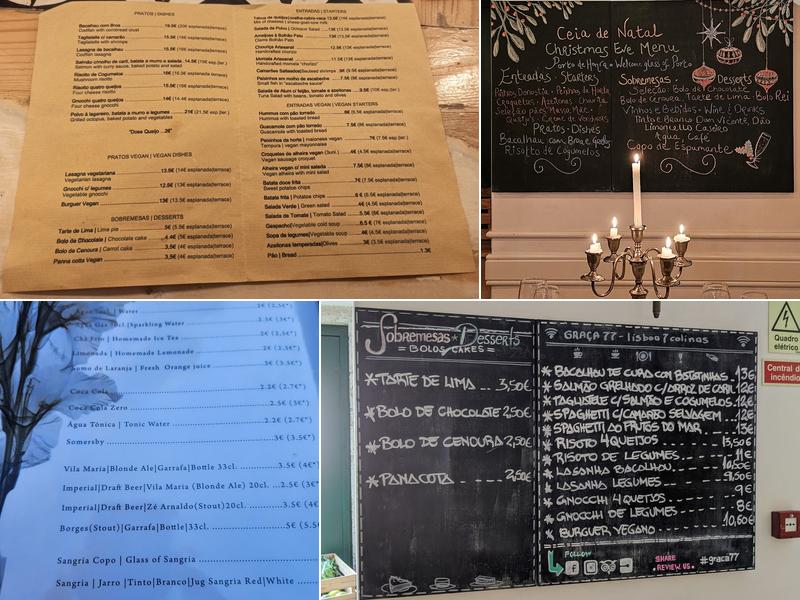 PRATOS | DISHES
Bacalhau com Broa ... 16.5€ (20€ esplanada|terrace)
Codfish with cornbread crust
Tagliatelle c/ camarão ... 15.5€ (16€ esplanada|terrace)
Tagliatelle with shrimps
Lasagna de bacalhau ... 15.5€ (16€ esplanada|terrace)
Codfish lasagna
Salmão c/molho de caril, batata a murro e salada
Salmon with curry sauce, baked potato and salad
Risotto de Cogumelos
Mushroom risotto
Risotto quatro queijos
Four cheese risotto
Gnocchi quatro queijos ... 14€
Four cheese gnocchi
Polvo à lagareiro, batata a murro e legumes ... 21€
Grilled octopus, baked potato and vegetables
"Dose Queijo ...2€"
PRATOS VEGAN | VEGAN DISHES
Lasagna vegetariana ... 13.5€ (14€ esplanada|terrace)
Vegetarian lasagna
Gnocchi c/ legumes ... 12.5€ (13€ esplanada|terrace)
Vegetable gnocchi
Burguer Vegan ... 13€ (13.5€ esplanada|terrace)
SOBREMESAS | DESSERTS
Tarte de Lima | Lime pie ... 5€ (5.5€ esplanada|terrace)
Bolo de Chocolate | Chocolate cake ... 4.4€ (5€ esplanada|terrace)
Bolo de Cenoura | Carrot cake ... 3.5€ (4€ esplanada|terrace)
Panna cotta Vegan ... 3.5€ (4€ esplanada|terrace)
ENTRADAS | STARTERS
Mix of cheeses | sheep-goat-cow milk
Salada de Polvo | Octopus Salad
Ameijoas à Bolhão Pato
Clams Bolhão Pato
Chouriça Artesanal
Handcrafted chorizo
Morcela Artesanal
Handcrafted morcela "chorizo"
Camarões Salteados|Sauteed shrimps
Peixinhos com molho de escabeche
Small fish in "escabeche sauce"
Salada de Atum c/ feijão, tomate e azeitona
Tuna Salad with beans, tomato and olives
ENTRADAS VEGAN | VEGAN STARTERS
Hummus com pão torrado
Hummus with toasted bread
Guacamole com pão torrado
Guacamole with toasted bread
Peixinhos da horta | maionese vegan
Tempura | vegan mayonnaise
Croquetes de alheira vegan
Vegan sausage croquet
Alheira vegan c/ mini salada
Vegan alheira with mini salad
Batata doce frita
Sweet potatos chips
Batata frita | Potatos chips
Salada Verde | Green salad
Salada de Tomate | Tomato Salad
Gaspacho|Vegetable cold soup
Sopa de legumes|Vegetable soup
Azeitonas temperadas|Olives
Pão | Bread ... 1.3€
Ceia de Natal
Christmas Eve Menu
Porto de Honra - Welcome glass of Porto
Entradas - Starters
Peixinhos da Horta
Croquetas - Azeitonas - Chouriça
Pratos - Dishes
Bacalhau com Broa e Grelos
Risotto de Cogumelos
Sobremesas - Desserts
Seleção: Bolo de Chocolate
Bolo de cenoura, Tarte de Lima, Bolo Rei
Vinhos - Bebidas - Wine | Drinks
Tinto e Branco Dom Vicente, Dão
Limoncello Caseiro
Água, Café
Copo de Espumante
Água 50cl. | Water ... 2€ (2.5€*)
Água Gás 70cl.|Sparkling Water
Chá Frio | Homemade Ice Tea
Limonada | Homemade Lemonade
Sumo de Laranja | Fresh Orange juice
Coca Cola ... 2.2€ (2.7€*)
Coca Cola Zero ... 2.5€ (3€*)
Água Tónica | Tonic Water ... 2.2€ (2.7€*)
Somersby ... 3€ (3.5€*)
Vila Maria|Blonde Ale|Garrafa|Bottle 33cl. ... 3.5€ (4€*)
Imperial|Draft Beer|Vila Maria (Blonde Ale) 20cl. ...2.5€ (3€*
Imperial|Draft Beer|Zé Arnaldo(Stout)20cl. ... 3.5€ (4€
Borges(Stout)|Garrafa|Bottle|33cl. ... 5€ (5.5€
Sangria Copo | Glass of Sangria
Sangria | Jarro |Tinto|Branco|Jug Sangria Red|White
Sobremesas * Desserts
= BOLOS/CAKES =
* TARTE DE LIMA --- 3,50€
* BOLO DE CHOCOLATE 2,50€
* BOLO DE CENOURA 2,50€
* PANACOTA ---- 2,50€
GRAÇA 77 - lisboa 7 colinas
* BACALHAU DE CURA COM BATATINHAS 13€
* SALMÃO GRELHADO C/ARROZ DE CARIL 12€
* TAGLIATELE C/SALMÃO E COGUMELOS 12€
* SPAGHETTI C/CAMARÃO SELVAGEM 12€
* SPAGHETTI AO FRUTOS DO MAR 13€
* RISOTO 4 QUEIJOS 13,50€
* RISOTO DE LEGUMES 11€
* LASANHA BACALHAU 10,50€
* LASANHA LEGUMES 9,50€
* GNOCCHI 4 QUEIJOS 9€
* GNOCCHI DE LEGUMES 8€
* BURGUER VEGANO 10,60€
FOLLOW
SHARE
REVIEW US
#graca77
Quadro
elétrico
Central d
incêndio